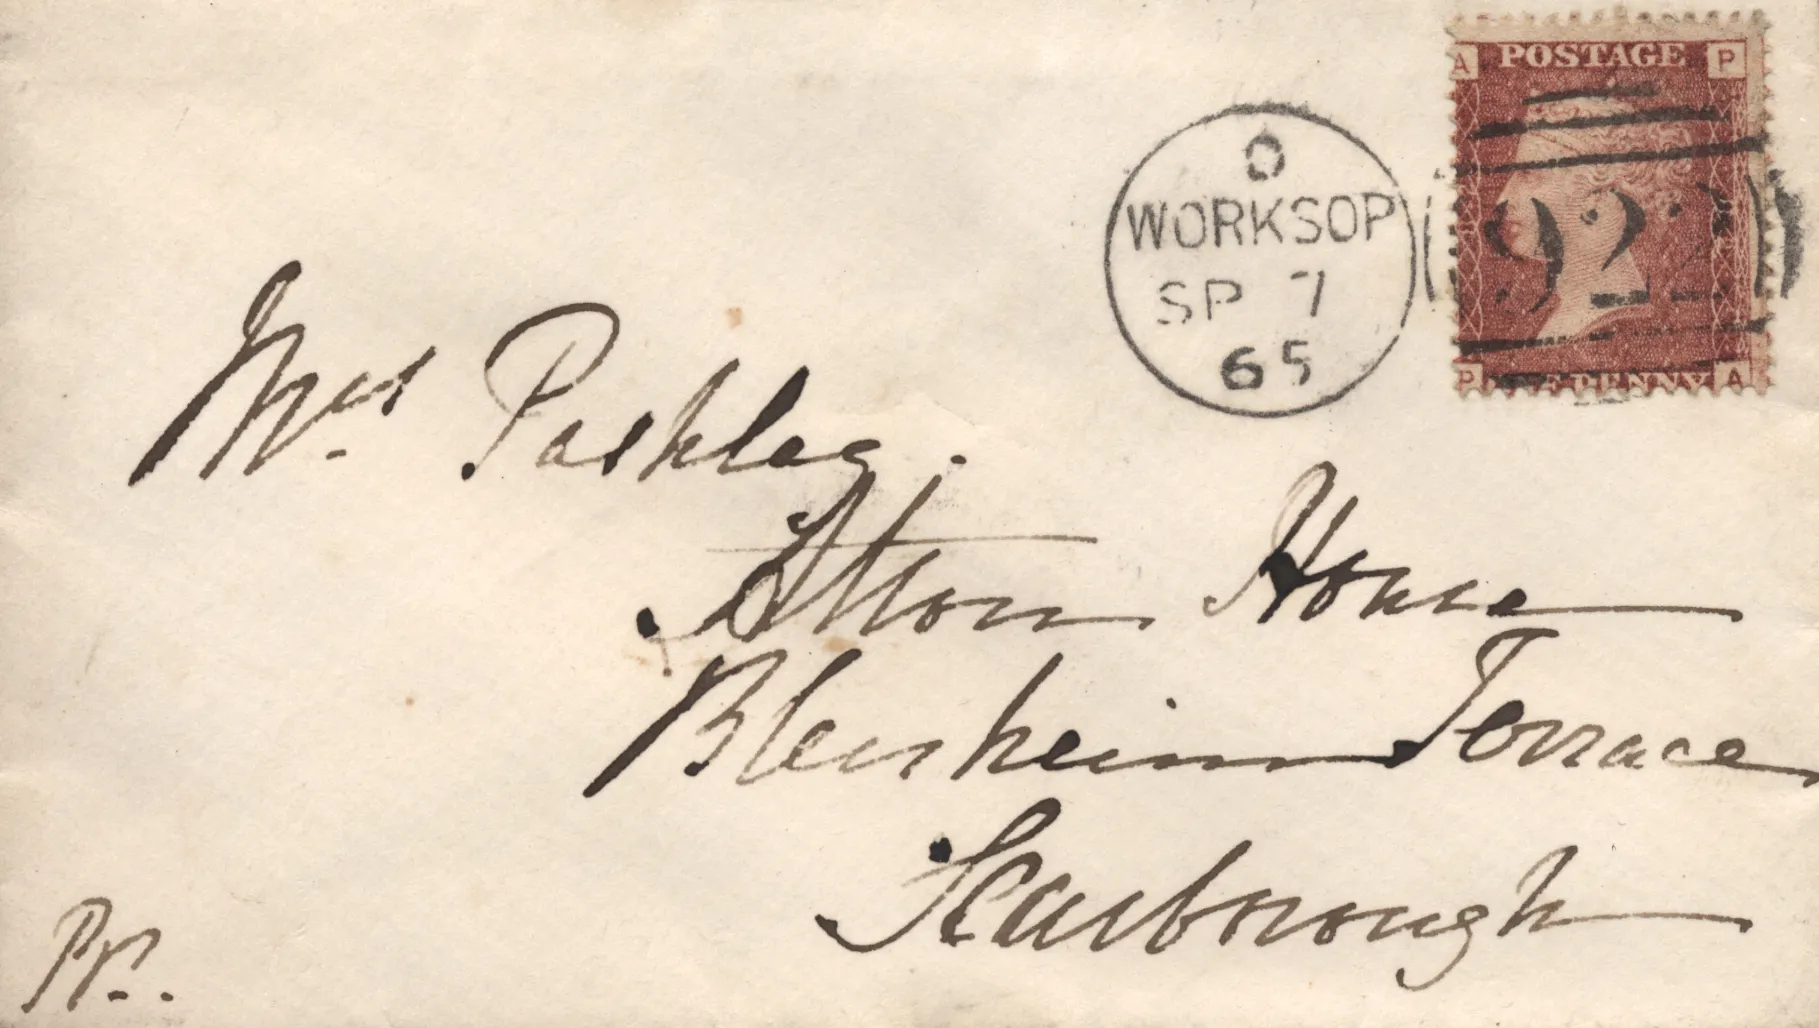 A POSTAGE P
O
WORKSOP
SP 7
65
922
P ONE PENNY A
Mrs. Pashley.
Etton House
Blenheim Terrace
Scarborough